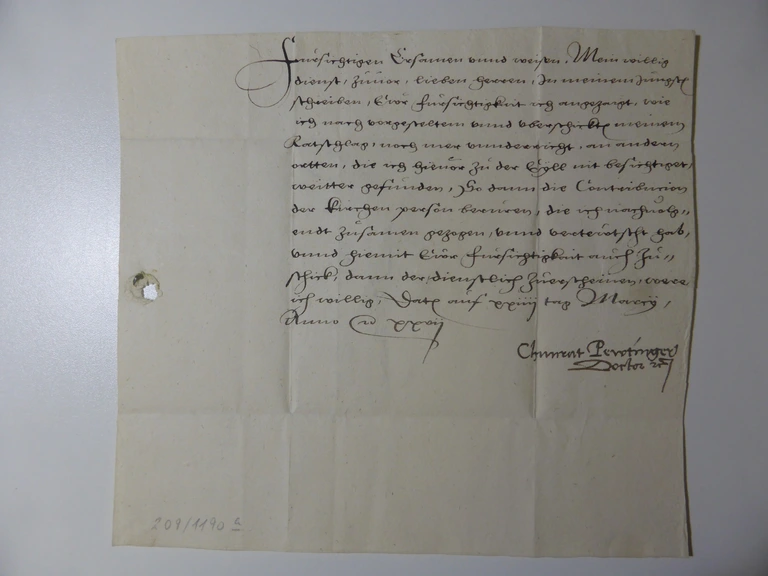 Fürsichtigen Ersamen vnnd weisen, Mein willig
dienst, züuor, lieben herren, In meinem Jüngstn
schreiben, Eẅr fürsichtigkait ich angezaigt, wie
ich nach vorgesteltem vnnd vberschicktn meinem
Ratschlag, noch mer vnnderricht, an andern
ortten, die ich hieuor zü der Eyll nit besichtiget,
weitter gefünden, So dann die Contribucion
der kirchen person berüren, die ich nachuolg=
endt züsamen gezogen, vnnd verteütscht hab,
vnnd hiemit Eẅr fürsichtigkait auch zü=
schick, dann der dienstlich züerscheinen, were
ich willig, Datn auf xxiiij tag Marcij,
Anno xxvij
Chunrat Pewtinger
Doctor
209/1190